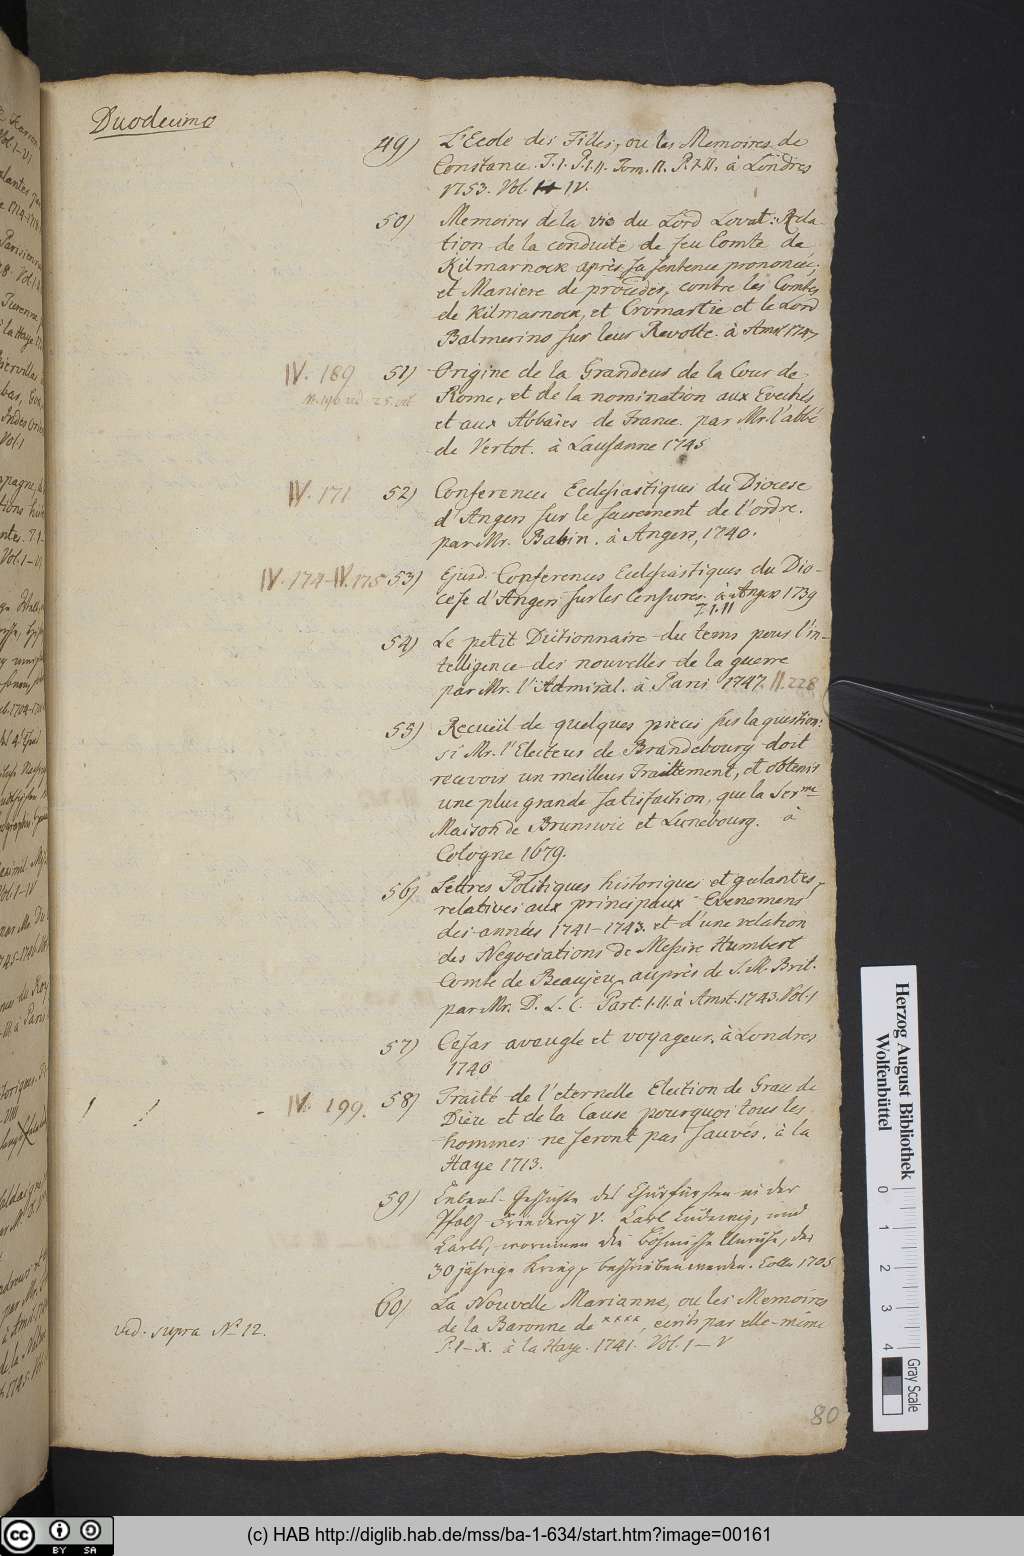 Duodecimo
49) L'Ecole des Filles, ou les Memoires de
Constance. T. I. P. I. II. Tom. II. P. I. II. à Londres
1753. Vol. IV.
50) Memoires de la vie du Lord Lovat: Rela-
tion de la conduite de feu Comte de
Kilmarnock après sa sentence prononcée;
et Maniere de proceder, contre les Comtes
de Kilmarnock, et Cromartie et le Lord
Balmerino sur leur Revolte. à Amst 1747
IV. 189 51) Origine de la Grandeur de la Cour de
Rome, et de la nomination aux Evechés
et aux Abbaïes de France. par Mr. l'abbé
de Vertot. à Lausanne 1745
IV. 171 52) Conferences Ecclesiastiques du Diocese
d'Angers sur le sacrement de l'ordre.
par Mr. Babin. à Angers, 1740.
IV. 174-IV. 175 53) Ejusd. Conferences Ecclesiastiques du Dio-
cese d'Angers sur les Censures à Angers 1739
T. I. II
54) Le petit Dictionnaire du tems pour l'in-
telligence des nouvelles de la guerre
par Mr. l'Admiral. à Paris 1747. II. 228
55) Recueil de quelques pieces sur la question:
si Mr. l'Electeur de Brandebourg doit
recevoir un meilleur Traittement, et obtenir
une plus grande satisfaction, que la Serme
Maison de Brunswic et Lunebourg. à
Cologne 1679.
56) Lettres Politiques historiques et galantes,
relatives aux principaux Evenemens
des années 1741-1743. et d'une relation
des Negociations de Messire Humbert
Comte de Beaujeu auprès de S. M. Brit.
par Mr. D. L. C. Part. I. II. à Amst. 1743. Vol. I
57) Cesar aveugle et voyageur, à Londres
1740
IV. 199. 58) Traité de l'eternelle Election de Grace de
Dieu et de la Cause pourquoi tous les
hommes ne seront pas sauvés. à la
Haye 1713.
59) Lebens-Geschichte des Churfürsten in der
Pfalz Friederich V. Carl Ludewig, und
Carls, worinnen die böhmische Unruhe, der
30 jährige Krieg, beschrieben werden. Cölln 1705
60) La Nouvelle Marianne, ou les Memoires
de la Baronne de ****, ecrits par elle-même
P. I-X. à la Haye. 1741. Vol. I-V
vid. supra No 12.
80
Herzog August Bibliothek
Wolfenbüttel
0 1 2 3 4
Gray Scale
cc BY SA
(c) HAB http://diglib.hab.de/mss/ba-1-634/start.htm?image=00161